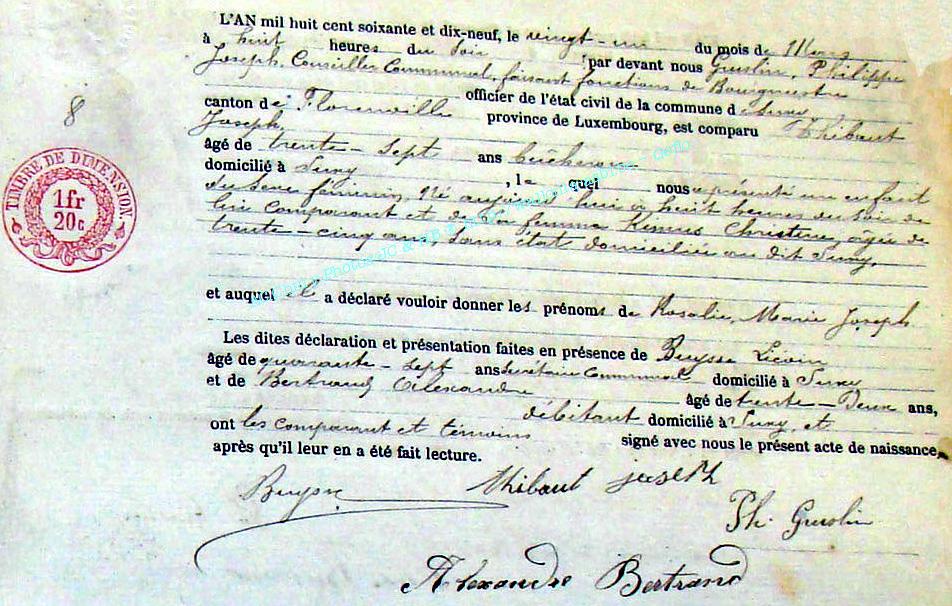 L'AN mil huit cent soixante et dix-neuf, le vingt-un du mois de Mars
à huit heures du soir par devant nous Guislin, Philippe
Joseph, Conseiller Communal, faisant fonctions de Bourgmestre
officier de l'état civil de la commune de Suxy
canton de Florenville province de Luxembourg, est comparu Thibaut
Joseph
âgé de trente-sept ans bûcheron
domicilié à Suxy, lequel nous a présenté un enfant
du sexe féminin, né aujourd'hui à huit heures du soir de
lui comparant et de sa femme Christine, âgée de
trente-cinq ans, sans état domiciliée au dit Suxy,
et auquel il a déclaré vouloir donner les prénoms de Rosalie, Marie Joseph
Les dites déclaration et présentation faites en présence de Buysse
âgé de quarante-sept ans Secrétaire Communal domicilié à Suxy
et de Bertrand Alexandre âgé de trente-Deux ans,
débitant domicilié à Suxy, et
ont les comparant et témoins signé avec nous le présent acte de naissance,
après qu'il leur en a été fait lecture.
Buysse
thibaut joseph
Ph. Guislin
Alexandre Bertrand
8
TIMBRE DE DIMENSION
1fr
20c